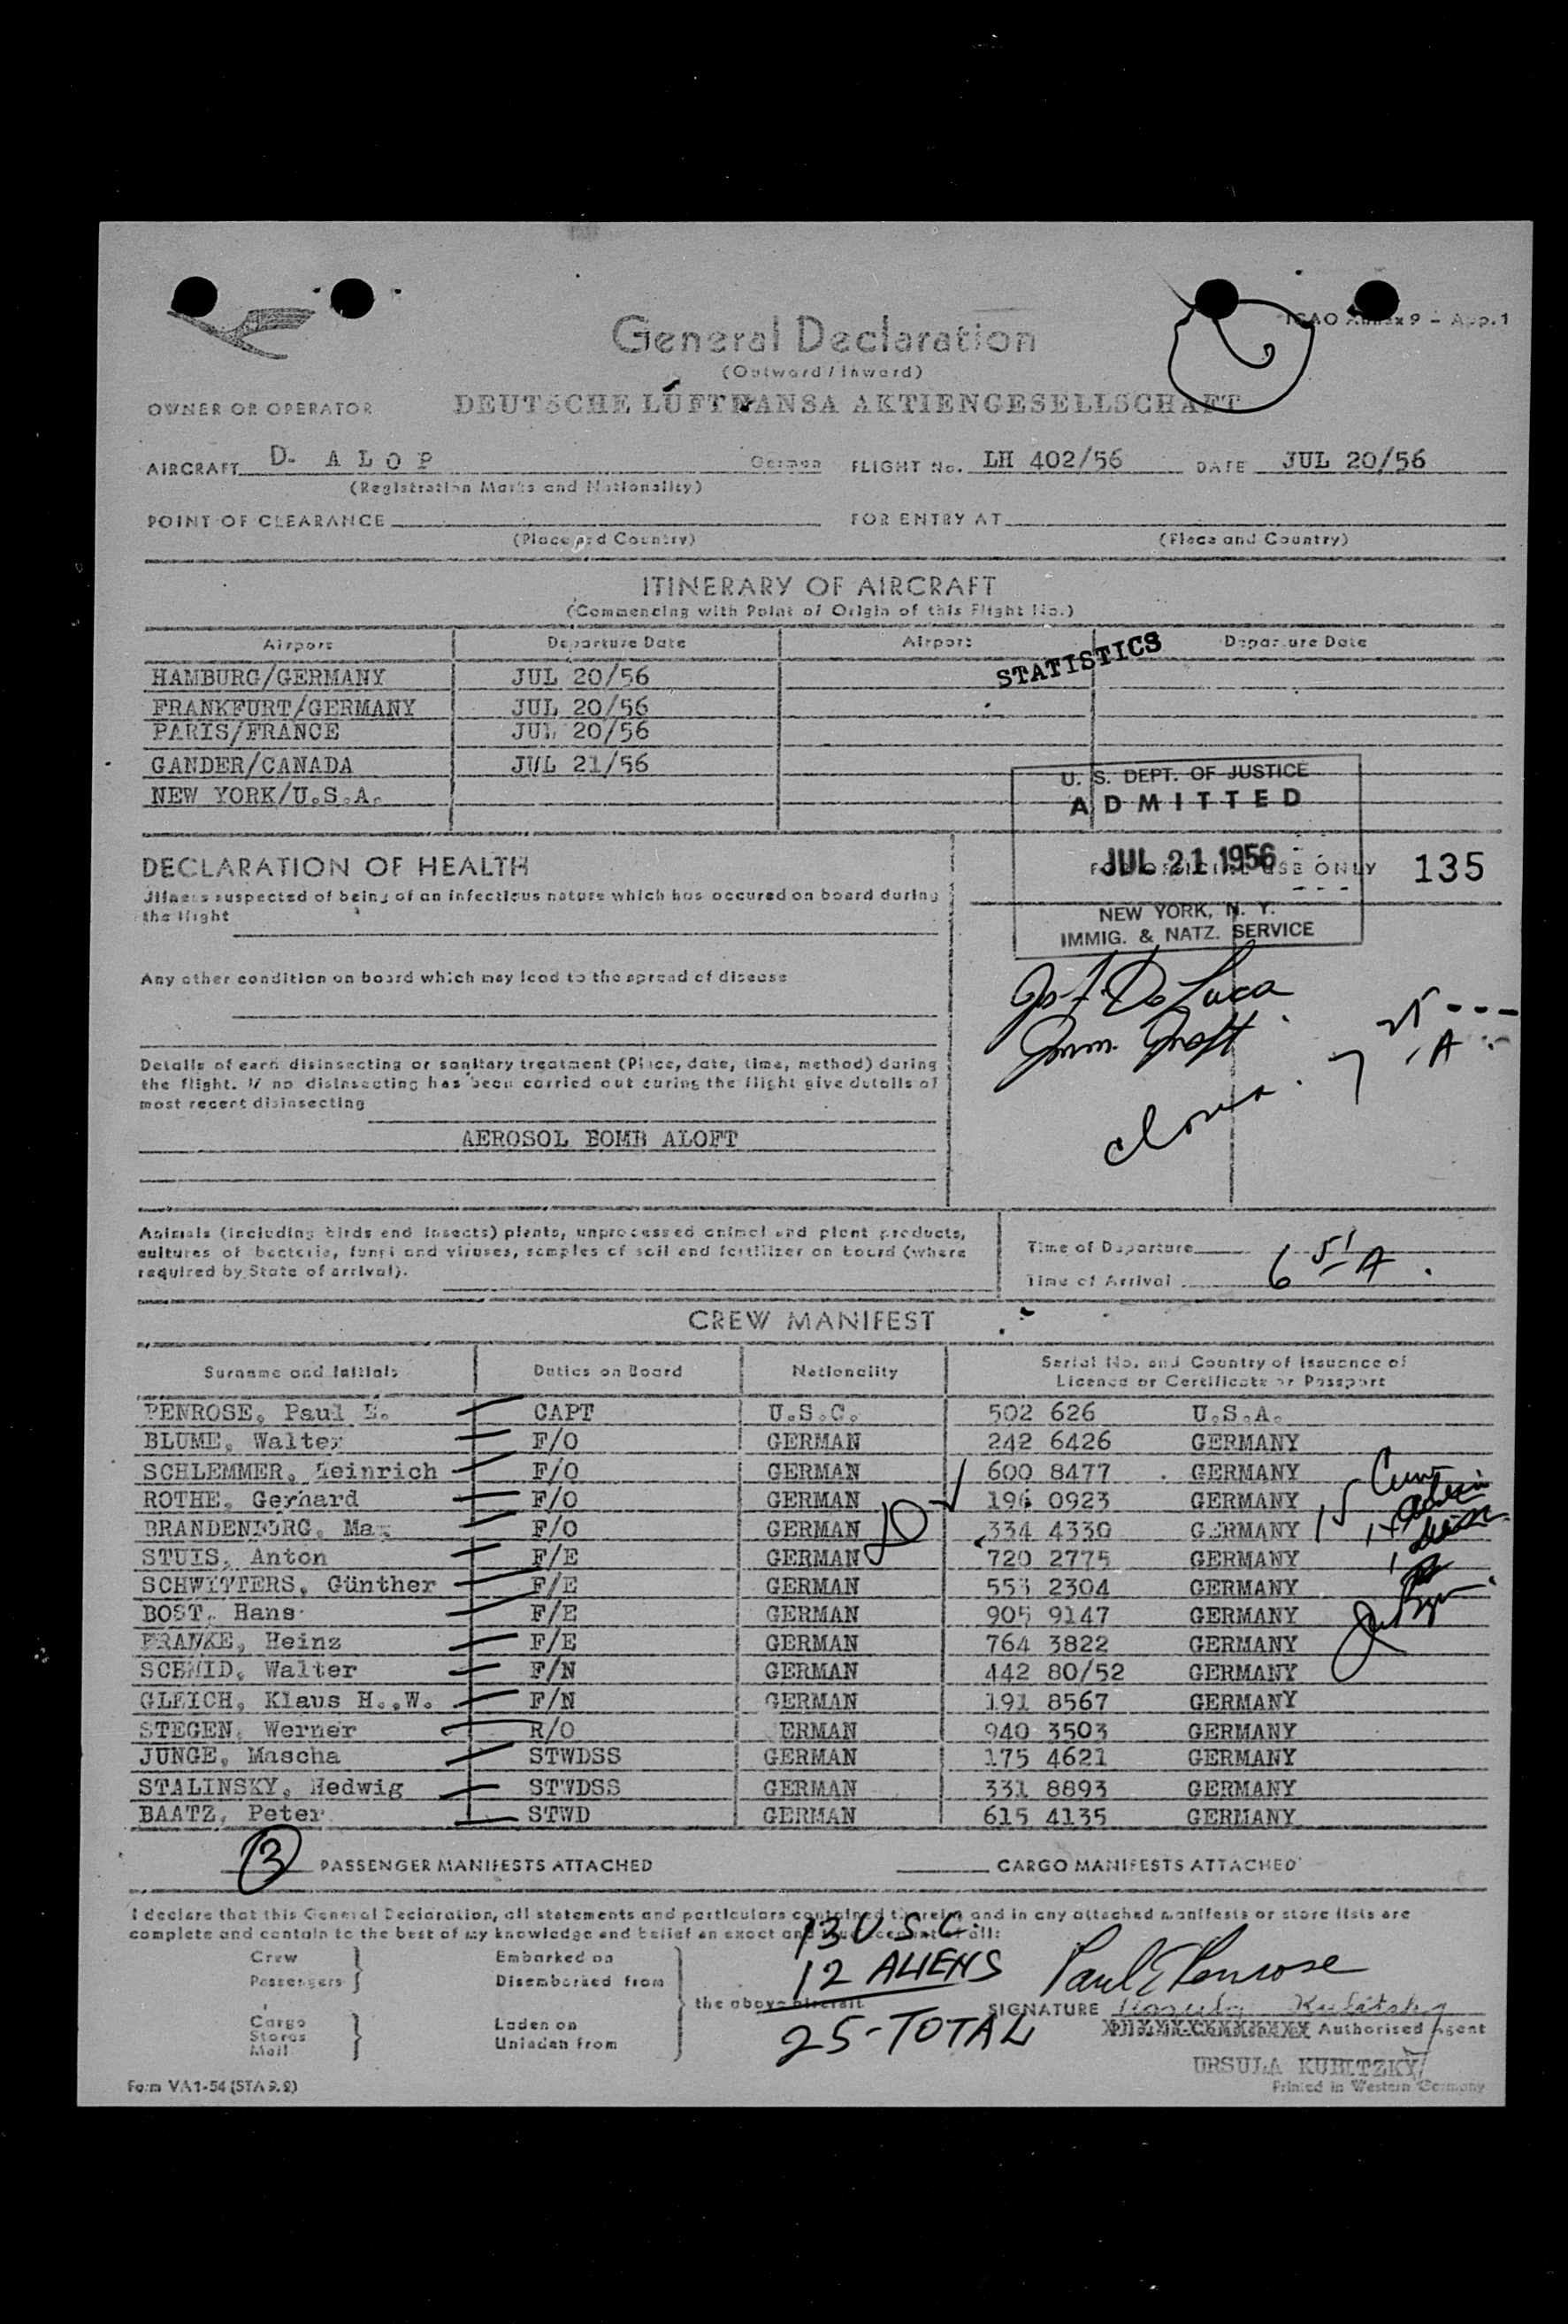 General Declaration
ICAO Annex 9 – App. 1
(Outward / Inward)
OWNER OR OPERATOR DEUTSCHE LUFTHANSA AKTIENGESELLSCHAFT
AIRCRAFT D- A L O P German FLIGHT No. LH 402/56 DATE JUL 20/56
(Registration Marks and Nationality)
POINT OF CLEARANCE FOR ENTRY AT
(Place and Country) (Place and Country)
ITINERARY OF AIRCRAFT
(Commencing with Point of Origin of this Flight No.)
Airport Departure Date Airport Departure Date
STATISTICS
HAMBURG/GERMANY JUL 20/56
FRANKFURT/GERMANY JUL 20/56
PARIS/FRANCE JUL 20/56
GANDER/CANADA JUL 21/56
NEW YORK/U.S.A.
U. S. DEPT. OF JUSTICE
ADMITTED
JUL 21 1956
NEW YORK, N. Y.
IMMIG. & NATZ. SERVICE
DECLARATION OF HEALTH
FOR OFFICIAL USE ONLY 135
Illness suspected of being of an infectious nature which has occured on board during
the flight
Any other condition on board which may lead to the spread of disease
Details of each disinsecting or sanitary treatment (Place, date, time, method) during
the flight. If no disinsecting has been carried out curing the flight give details of
most recent disinsecting
AEROSOL BOMB ALOFT
Animals (including birds and insects) plants, unprocessed animal and plant products,
cultures of bacteria, fungi and viruses, samples of soil and fertilizer on board (where
required by State of arrival).
Time of Departure
Time of Arrival 6 51 A
CREW MANIFEST
Surname and Initials Duties on Board Nationality Serial No. and Country of Issuance of
Licence or Certificate or Passport
PENROSE, Paul E. CAPT U.S.C. 502 626 U.S.A.
BLUME, Walter F/O GERMAN 242 6426 GERMANY
SCHLEMMER, Heinrich F/O GERMAN 600 8477 GERMANY
ROTHE, Gerhard F/O GERMAN 196 0923 GERMANY
BRANDENBURG, Max F/O GERMAN 334 4330 GERMANY
STUIS, Anton F/E GERMAN 720 2775 GERMANY
SCHWITTERS, Günther F/E GERMAN 553 2304 GERMANY
BOST, Hans F/E GERMAN 905 9147 GERMANY
FRANKE, Heinz F/E GERMAN 764 3822 GERMANY
SCHMID, Walter F/N GERMAN 442 80/52 GERMANY
GLEICH, Klaus H.,W. F/N GERMAN 191 8567 GERMANY
STEGEN, Werner R/O ERMAN 940 3503 GERMANY
JUNGE, Mascha STWDSS GERMAN 175 4621 GERMANY
STALINSKY, Hedwig STWDSS GERMAN 331 8893 GERMANY
BAATZ, Peter STWD GERMAN 615 4135 GERMANY
3 PASSENGER MANIFESTS ATTACHED CARGO MANIFESTS ATTACHED
I declare that this General Declaration, all statements and particulars contained therein and in any attached manifests or store lists are
complete and contain to the best of my knowledge and belief an exact and true account of all:
13 U.S.C.
12 ALIENS
25-TOTAL
Crew Embarked on
Passengers Disembarked from
the above aircraft
Cargo Laden on
Stores Unladen from
Mail
Paul E Penrose
SIGNATURE Ursula Kubitzky
Authorised Agent
URSULA KUBITZKY
Form VA1-54 (STA 9.2) Printed in Western Germany